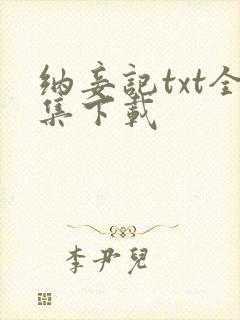 纳妾記txt全
集下載
李尹兒